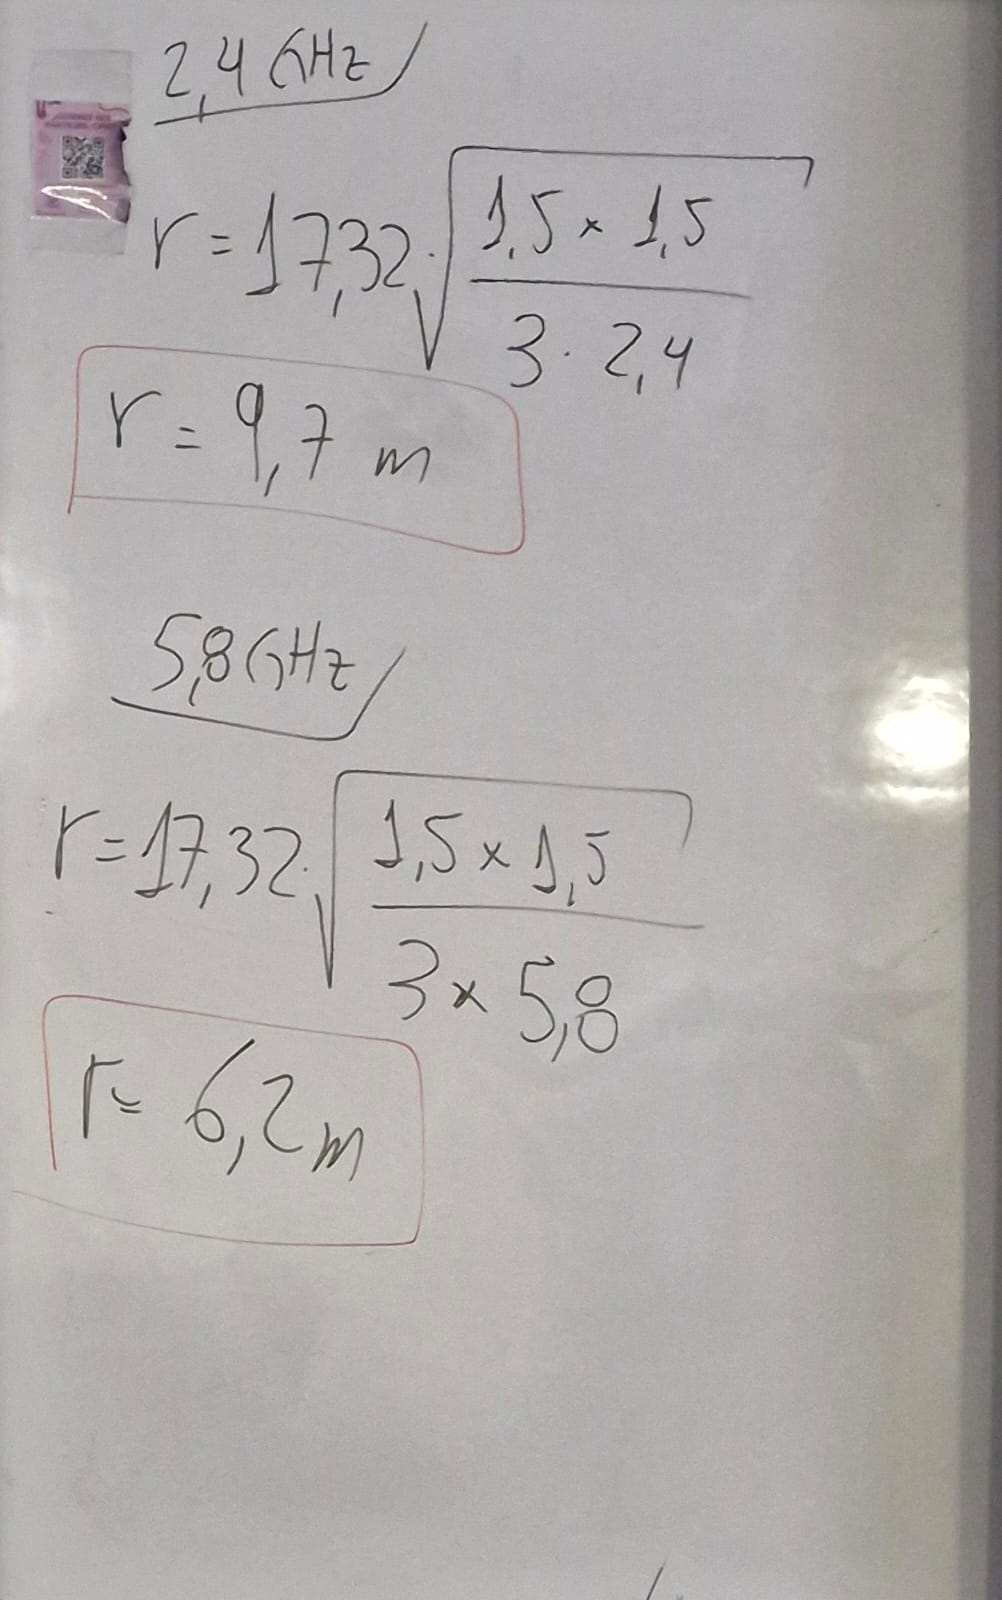 2,4 GHz
r = 17,32 · √ 1,5 × 1,5
3 · 2,4
r = 9,7 m
5,8 GHz
r = 17,32 · √ 1,5 × 1,5
3 × 5,8
r = 6,2 m